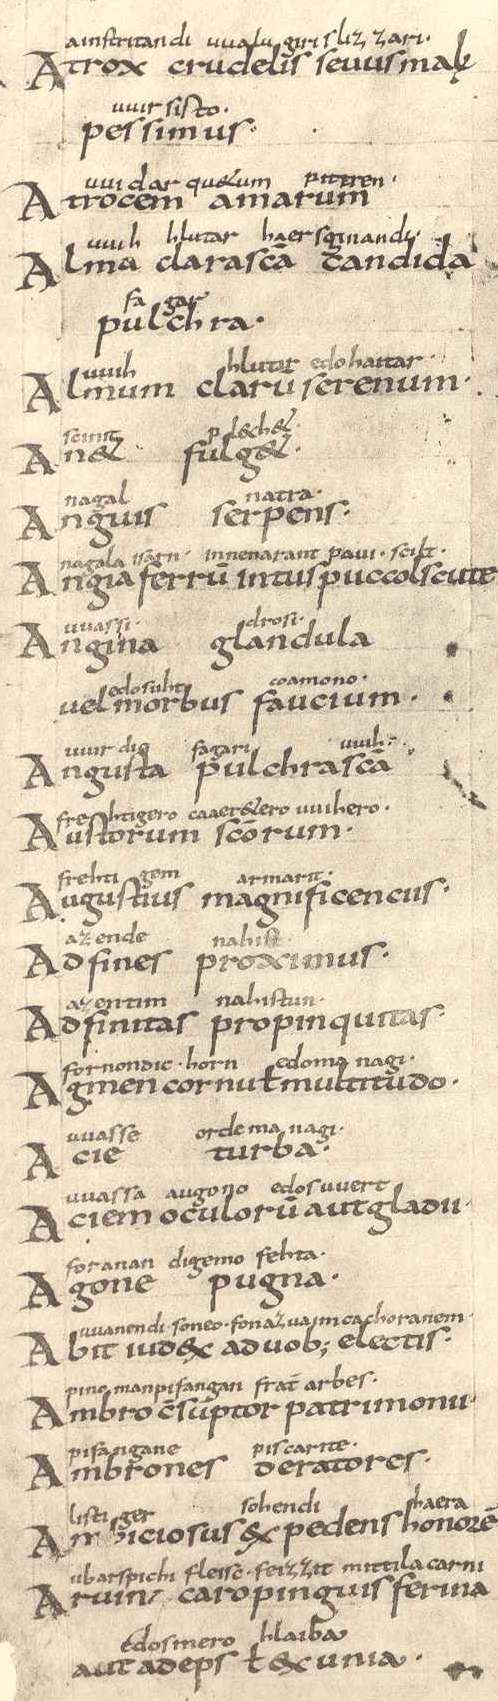 ainstritandi uualugiri sliz zari·
Atrox crudelis seuus mal&
uuirsisto·
pessimus·
uuidar queum pittren·
Atrocem amarum
uuih hlutar haer sginandi·
Alma clara scā candida
fagar
pulchra·
uuih hlutar edo haitar·
Almum clarū serenum·
scinit plechet·
An& fulg&·
nagal natra·
Anguis serpens·
nagala isarn· innenarant paui· scilt·
Angia ferrū intus puccol scute
uuassi· drosi·
Angina glandula
edo suht coamono·
uel morbus faucium·
uuirdig fagari uuih·
Angusta pulchra scā
frehtigero caaeretero uuihero·
Austorum scōrum·
frehtigem armarit·
Augustius magnificencius·
az ende nahist
Adfines proximus·
az entim nahistun·
Adfinitas propinquitas·
fornondic· horn edo managi·
Agmen cornu ł multitudo·
uuasse orde managi·
Acie turba·
uuassa augono edo suuert
Aciem oculorū aut gladii·
foranan digemo fehta·
Agone pugna·
uuanendi soneo· fona zuaim cachoranem·
Abit iudex a duob; electis·
pinoman pifangan frat arbes·
Ambro cūsūptor patrimonii·
pifangane piscarite·
Ambrones deratores·
listiger sohendi haera
Ambiciosus expedens honorē
ubarspichi fleisc· feizzit mittilacarni
Aruin, caro pinguis ferina
edo smero hlaiba
aut adeps ł exunia·